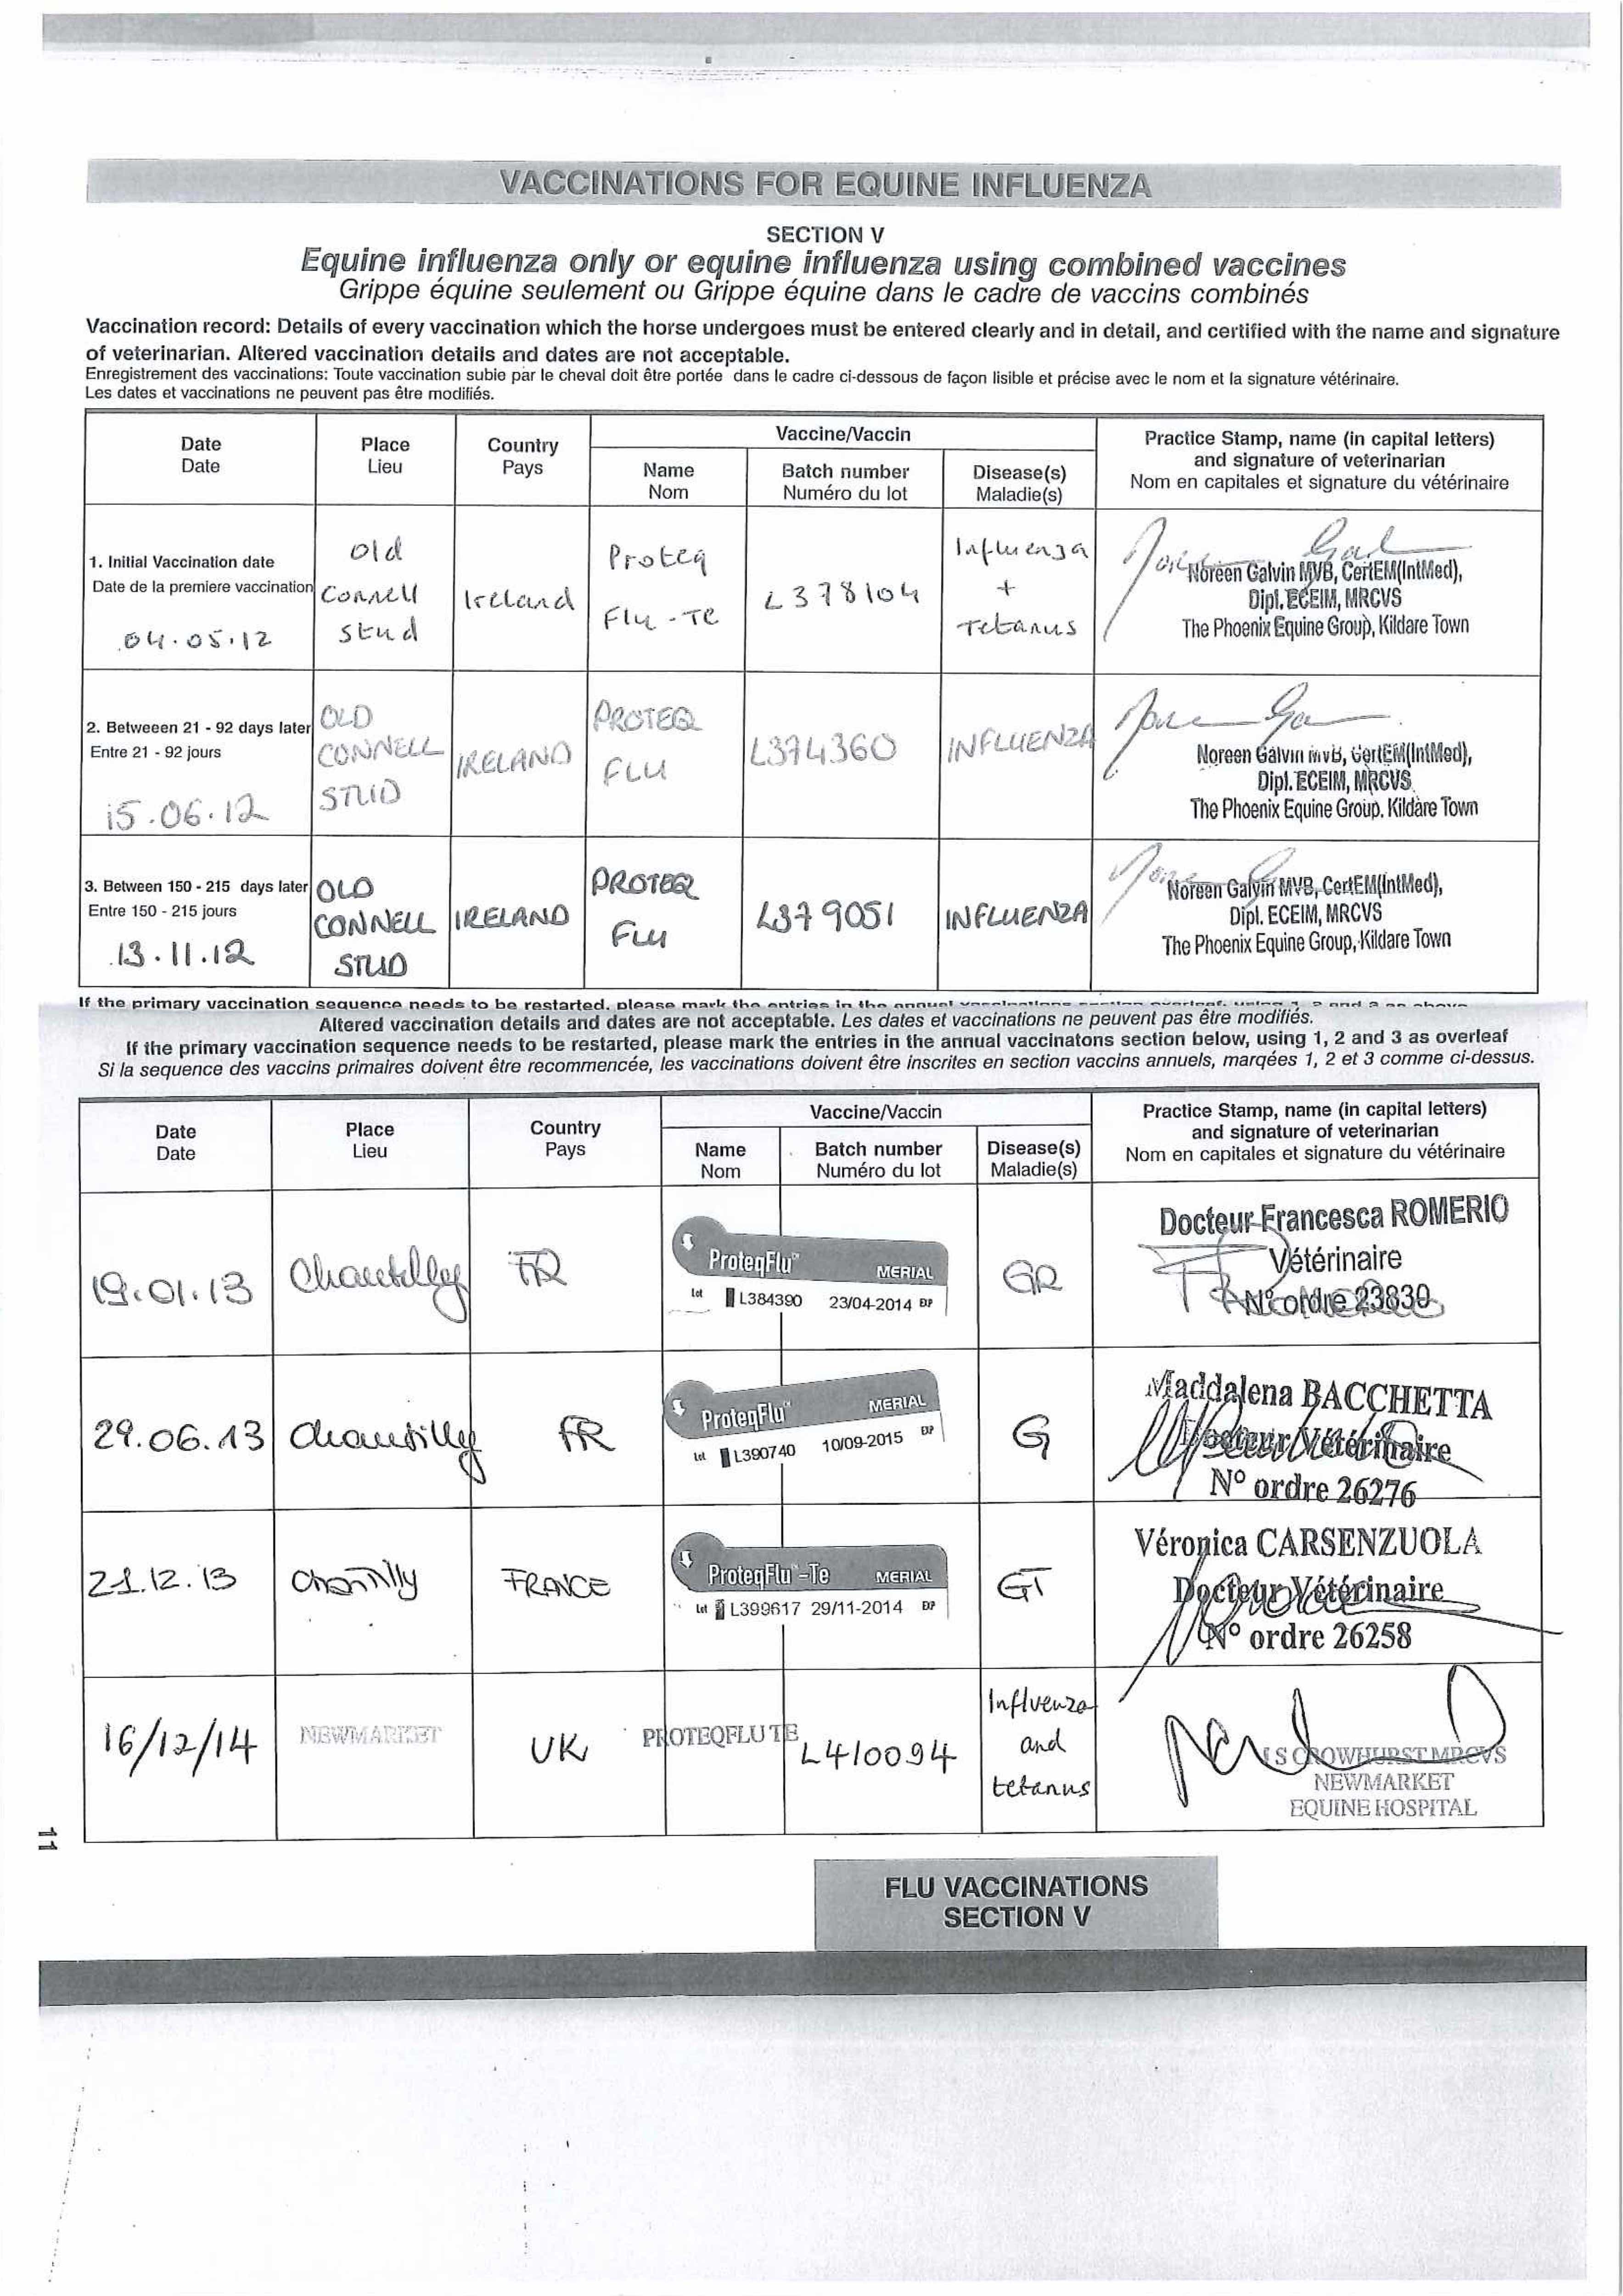 VACCINATIONS FOR EQUINE INFLUENZA
SECTION V
Equine influenza only or equine influenza using combined vaccines
Grippe équine seulement ou Grippe équine dans le cadre de vaccins combinés
Vaccination record: Details of every vaccination which the horse undergoes must be entered clearly and in detail, and certified with the name and signature
of veterinarian. Altered vaccination details and dates are not acceptable.
Enregistrement des vaccinations: Toute vaccination subie par le cheval doit être portée dans le cadre ci-dessous de façon lisible et précise avec le nom et la signature vétérinaire.
Les dates et vaccinations ne peuvent pas être modifiés.
Date
Date
Place
Lieu
Country
Pays
Vaccine/Vaccin
Name
Nom
Batch number
Numéro du lot
Disease(s)
Maladie(s)
Practice Stamp, name (in capital letters)
and signature of veterinarian
Nom en capitales et signature du vétérinaire
1. Initial Vaccination date
Date de la premiere vaccination
04.05.12
Old
Connell
Stud
Ireland
Proteq
Flu-Te
L378104
Influenza
+
Tetanus
Noreen Galvin MVB, CertEM(IntMed),
Dipl. ECEIM, MRCVS
The Phoenix Equine Group, Kildare Town
2. Betweeen 21 - 92 days later
Entre 21 - 92 jours
15.06.12
OLD
CONNELL
STUD
IRELAND
PROTEQ
FLU
L374360
INFLUENZA
Noreen Galvin MVB, CertEM(IntMed),
Dipl. ECEIM, MRCVS
The Phoenix Equine Group. Kildare Town
3. Between 150 - 215 days later
Entre 150 - 215 jours
13.11.12
OLD
CONNELL
STUD
IRELAND
PROTEQ
FLU
L379051
INFLUENZA
Noreen Galvin MVB, CertEM(IntMed),
Dipl. ECEIM, MRCVS
The Phoenix Equine Group, Kildare Town
If the primary vaccination sequence needs to be restarted, please mark the entries in the annual
Altered vaccination details and dates are not acceptable. Les dates et vaccinations ne peuvent pas être modifiés.
If the primary vaccination sequence needs to be restarted, please mark the entries in the annual vaccinatons section below, using 1, 2 and 3 as overleaf
Si la sequence des vaccins primaires doivent être recommencée, les vaccinations doivent être inscrites en section vaccins annuels, marqées 1, 2 et 3 comme ci-dessus.
Date
Date
Place
Lieu
Country
Pays
Vaccine/Vaccin
Name
Nom
Batch number
Numéro du lot
Disease(s)
Maladie(s)
Practice Stamp, name (in capital letters)
and signature of veterinarian
Nom en capitales et signature du vétérinaire
19.01.13
Chantilly
FR
ProteqFlu™ MERIAL
Lot L384390 23/04-2014 EXP
GR
Docteur Francesca ROMERIO
Vétérinaire
N° ordre 23830
29.06.13
Chantilly
FR
ProteqFlu™ MERIAL
Lot L390740 10/09-2015 EXP
G
Maddalena BACCHETTA
Docteur Vétérinaire
N° ordre 26276
21.12.13
Chantilly
FRANCE
ProteqFlu™-Te MERIAL
Lot L399617 29/11-2014 EXP
GT
Véronica CARSENZUOLA
Docteur Vétérinaire
N° ordre 26258
16/12/14
NEWMARKET
UK
PROTEQFLU TE
L410094
Influenza
and
tetanus
I S CROWHURST MRCVS
NEWMARKET
EQUINE HOSPITAL
11
FLU VACCINATIONS
SECTION V